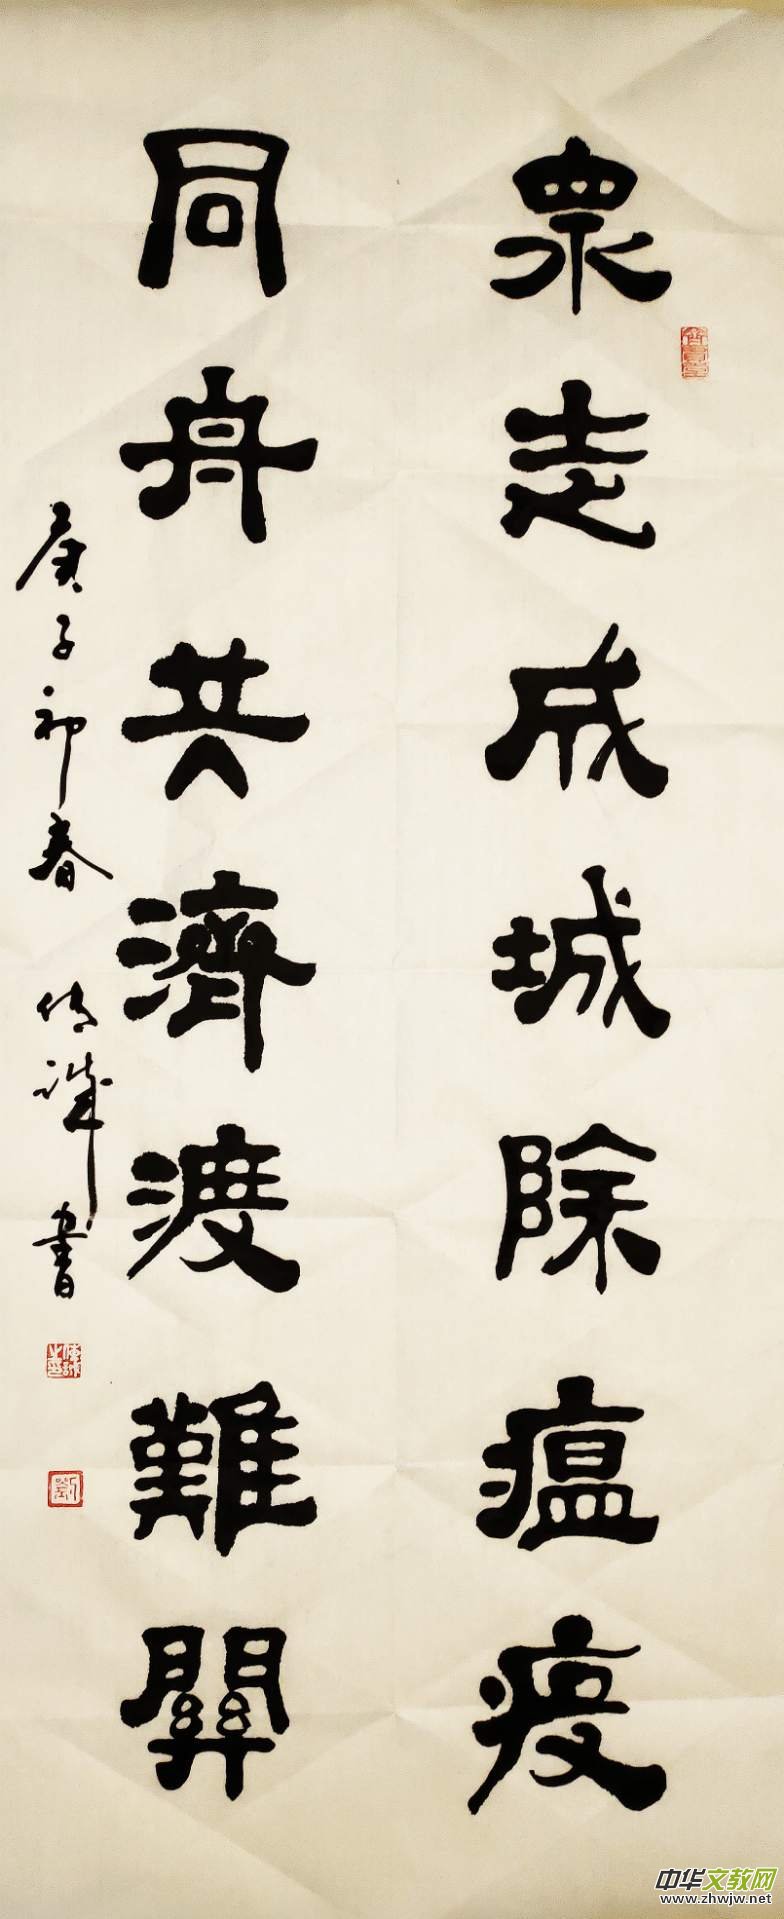 眾志成城除瘟疫
同舟共濟渡難關
庚子初春 傳誠書
中华文教网
www.zhwjw.net